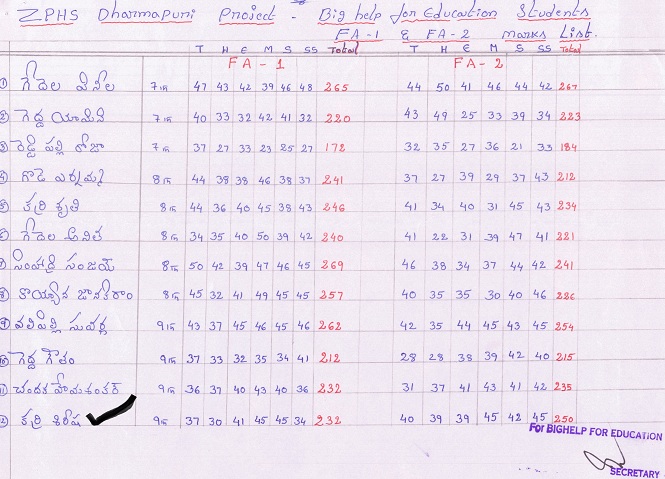 ZPHS Dharmapuri Project - Big help for Education Students
FA-1 & FA-2 marks List.
T H E M S SS Total T H E M S SS Total
FA-1 FA-2
① గేదెల వినీల 7th 47 43 42 39 46 48 265 44 50 41 46 44 42 267
② గెడ్డ యామిని 7th 40 33 32 42 41 32 220 43 49 25 33 39 34 223
③ రెడ్డి పల్లి రోజా 7th 37 27 33 23 25 27 172 32 35 27 36 21 33 184
④ గొడె ఎర్రమ్మ 8th 44 38 38 46 38 37 241 37 27 39 29 37 43 212
⑤ కర్రి శృతి 8th 44 36 40 45 38 43 246 41 34 40 31 45 43 234
⑥ గేదెల అనిత 8th 34 35 40 50 39 42 240 41 22 31 39 47 41 221
⑦ సింహాద్రి సంజయ్ 8th 50 42 39 47 46 45 269 46 38 34 37 44 42 241
⑧ కొయ్యాన జానకిరాం 8th 45 32 41 49 45 45 257 40 35 35 30 40 46 226
⑨ వలిపిల్లి సువర్ణ 9th 43 37 45 46 45 46 262 42 35 44 45 43 45 254
⑩ గెడ్డ గౌతం 9th 37 33 32 35 34 41 212 28 28 38 39 42 40 215
⑪ చందక హేమశంకర్ 9th 36 37 40 43 40 36 232 31 37 41 43 41 42 235
⑫ కర్రి శిరీష 9th 37 30 41 45 45 34 232 40 39 39 45 42 45 250
For BIGHELP FOR EDUCATION
SECRETARY